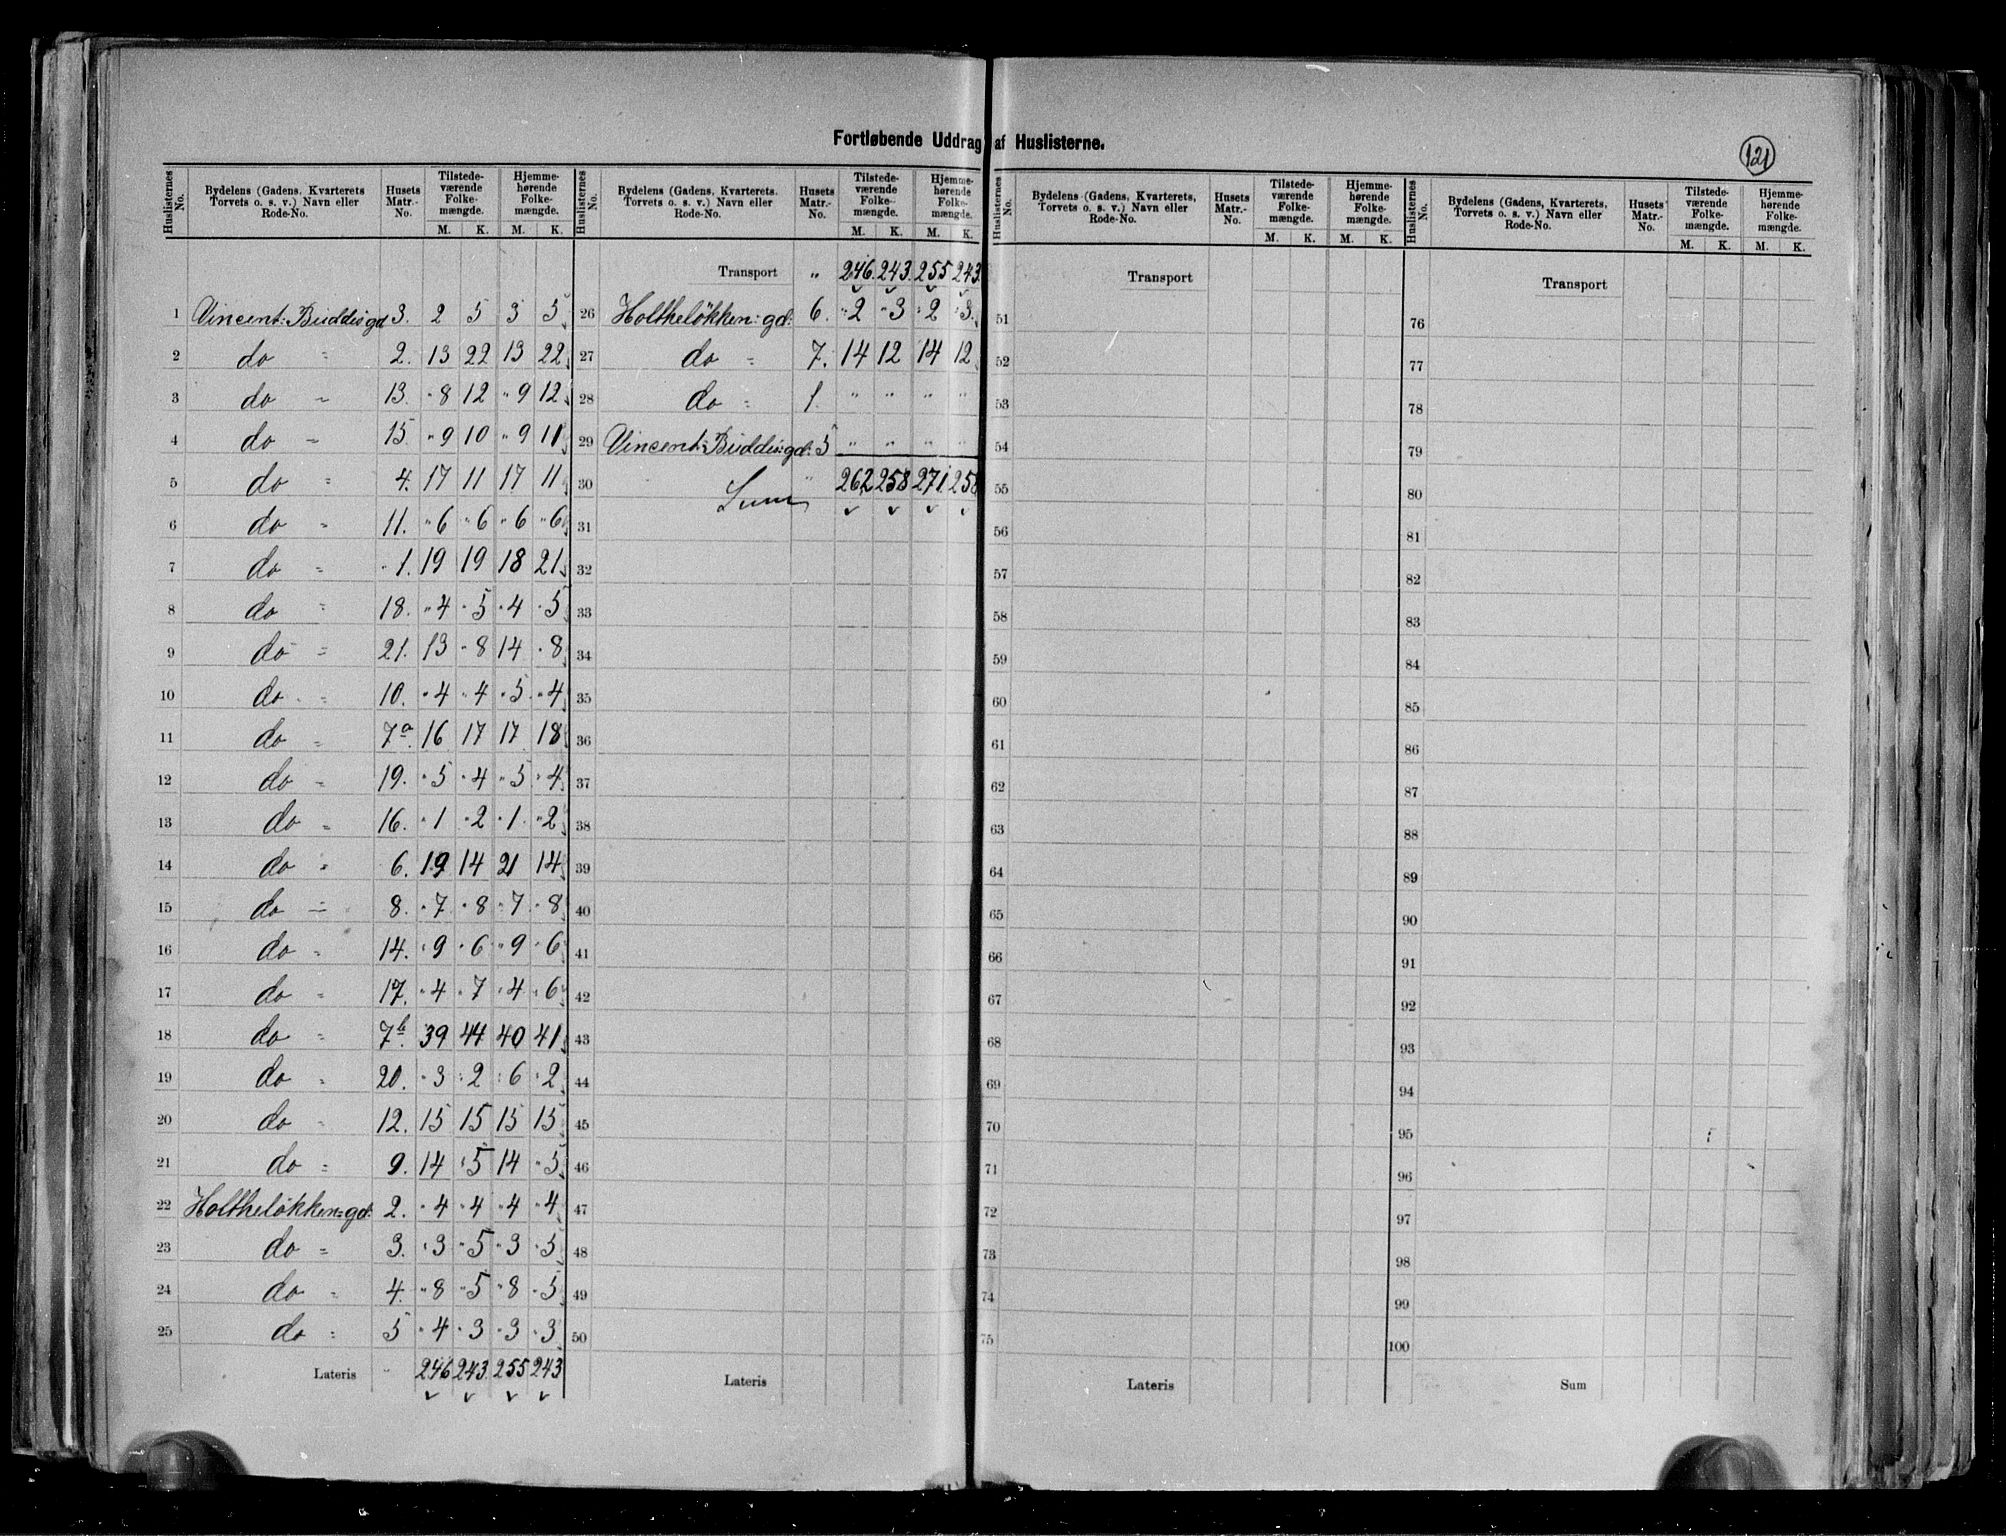 Fortløbende Uddrag af Huslisterne.
121
Huslisternes No. | Bydelens (Gadens, Kvarterets Torvets o. s. v.) Navn eller Rode-No. | Husets Matr.-No. | Tilstedeværende Folkemængde. M. K. | Hjemmehørende Folkemængde. M. K.
1 Vincent: Buddesgd 3. 2 5 3 5
2 do " 2. 13 22 13 22
3 do " 13. " 8 12 " 9 12
4 do " 15. " 9 10 " 9 11
5 do " 4. 17 11 17 11
6 do " 11. " 6 " 6 " 6 " 6
7 do " 1. 19 19 18 21
8 do " 18. " 4 " 5 " 4 " 5
9 do " 21. 13 " 8 14 " 8
10 do " 10. " 4 " 4 " 5 " 4
11 do " 7a 16 17 17 18
12 do " 19. " 5 " 4 " 5 " 4
13 do " 16. " 1 " 2 " 1 " 2
14 do " 6. 19 14 21 14
15 do " 8. " 7 " 8 " 7 " 8
16 do " 14. " 9 " 6 " 9 " 6
17 do " 17. " 4 " 7 " 4 " 6
18 do " 7b 39 44 40 41
19 do " 20. " 3 " 2 " 6 " 2
20 do " 12. 15 15 15 15
21 do " 9. 14 " 5 14 " 5
22 Holtheløkken=gd: 2. " 4 " 4 " 4 " 4
23 do " 3. " 3 " 5 " 3 " 5
24 do " 4. " 8 " 5 " 8 " 5
25 do " 5 " 4 " 3 " 3 " 3
Lateris " 246 243. 255 243
Huslisternes No. | Bydelens (Gadens, Kvarterets. Torvets o. s. v.) Navn eller Rode-No. | Husets Matr.-No. | Tilstedeværende Folkemængde. M. K. | Hjemmehørende Folkemængde. M. K.
Transport " 246. 243. 255 243
26 Holtheløkken=gd: 6. " 2 " 3 " 2 " 3
27 do " 7. 14 12 14 12
28 do " 1. " " " "
29 Vincent: Buddes:gd: 5 " " " "
30 Sum " 262 258 271 258
31
32
33
34
35
36
37
38
39
40
41
42
43
44
45
46
47
48
49
50
Lateris
Huslisternes No. | Bydelens (Gadens, Kvarterets, Torvets o. s. v.) Navn eller Rode-No. | Husets Matr.-No. | Tilstedeværende Folkemængde. M. K. | Hjemmehørende Folkemængde. M. K.
Transport
51
52
53
54
55
56
57
58
59
60
61
62
63
64
65
66
67
68
69
70
71
72
73
74
75
Lateris
Huslisternes No. | Bydelens (Gadens, Kvarterets, Torvets o. s. v.) Navn eller Rode-No. | Husets Matr.-No. | Tilstedeværende Folkemængde. M. K. | Hjemmehørende Folkemængde. M. K.
Transport
76
77
78
79
80
81
82
83
84
85
86
87
88
89
90
91
92
93
94
95
96
97
98
99
100
Sum